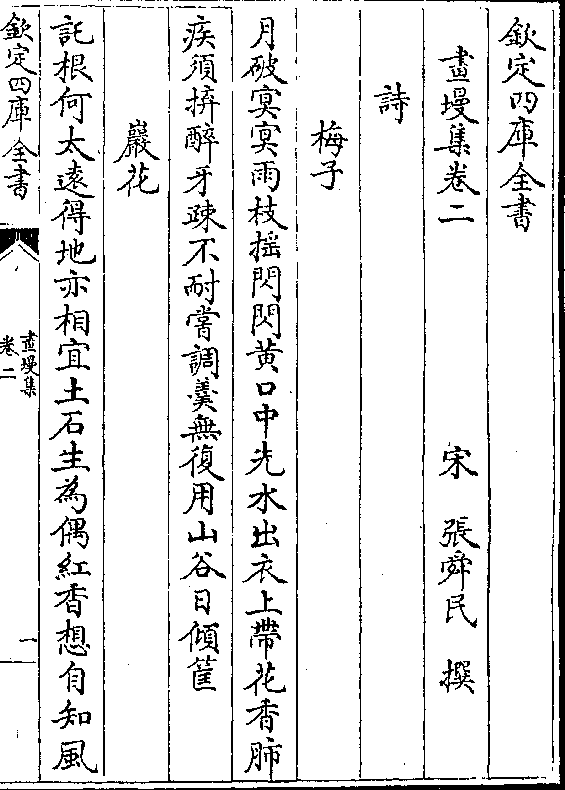 欽定四庫全書
畫墁集卷二
宋 張舜民 撰
詩
梅子
月破㝠㝠雨枝揺閃閃黄口中先水出衣上帶花香肺
疾須拚醉牙踈不耐嘗調羮無復用山谷日傾筐
巖花
託根何太逺得地亦相宜土石生為偶紅香想自知風
欽定四庫全書
畫墁集
卷二
一